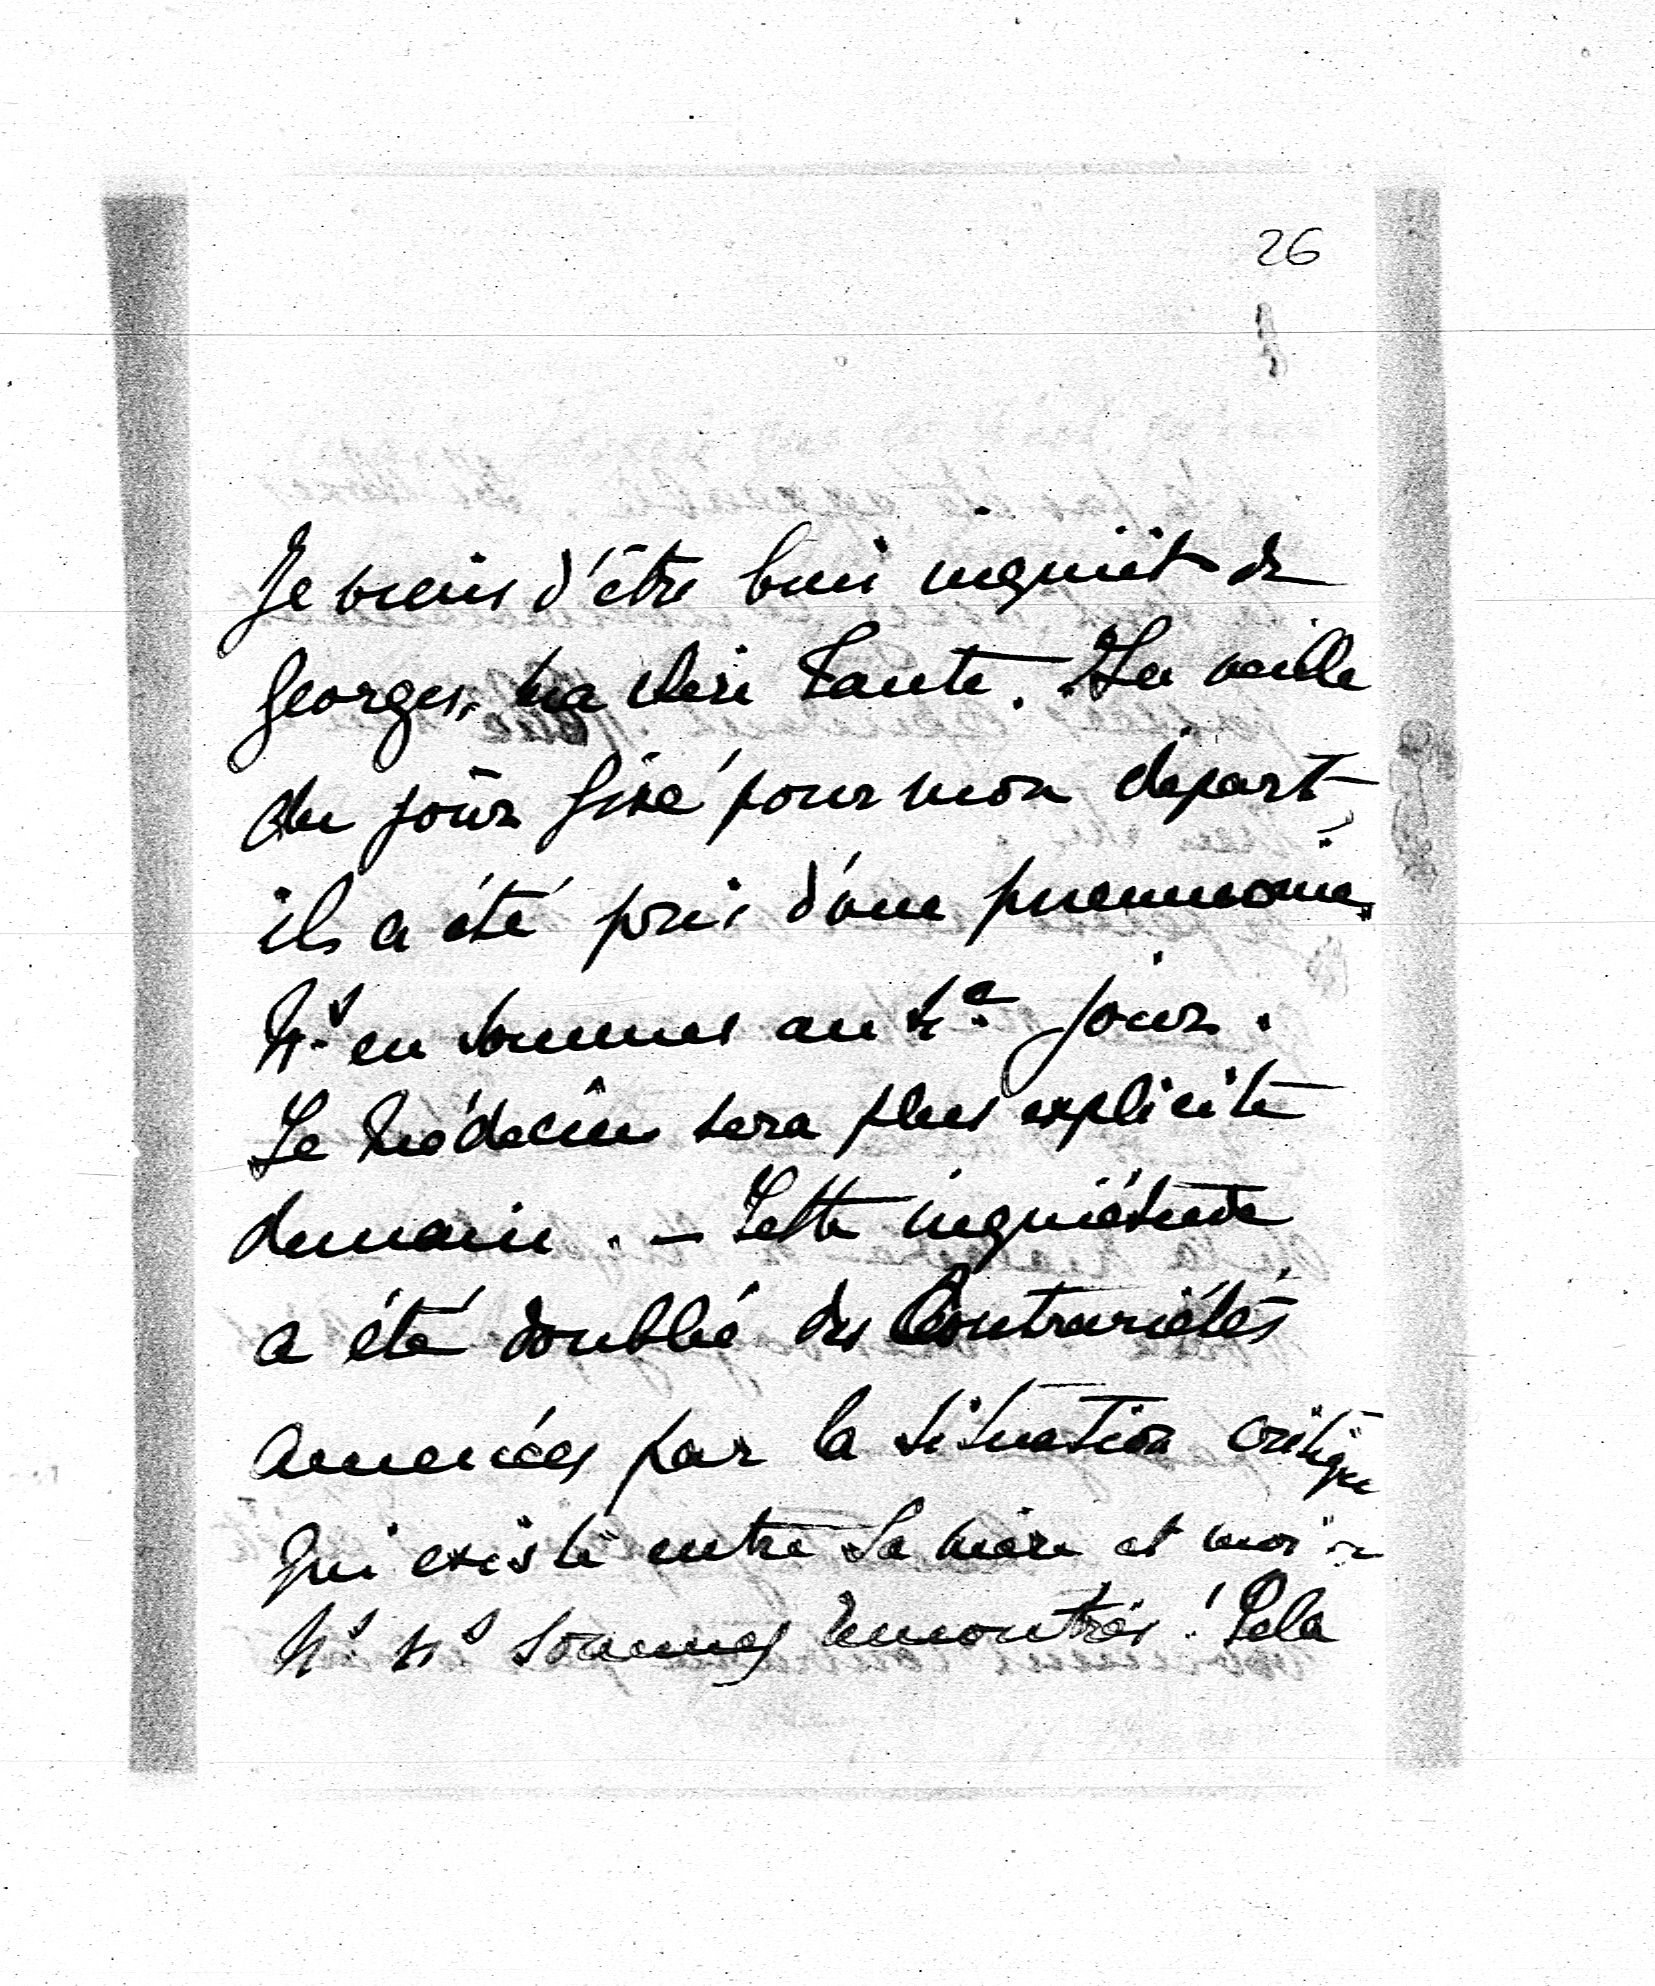 26
Je viens d'être bien inquiet de
Georges, ma chère Tante. La veille
du jour fixé pour mon départ
il a été pris d'une pneumonie.
Ns en sommes au 4e jour.
Le Médecin sera plus explicite
demain. – Cette inquiétude
a été doublé des Contrariétés
amenées par la situation critique
qui existe entre sa mère et moi –
Ns ns sommes rencontrés ! Cela